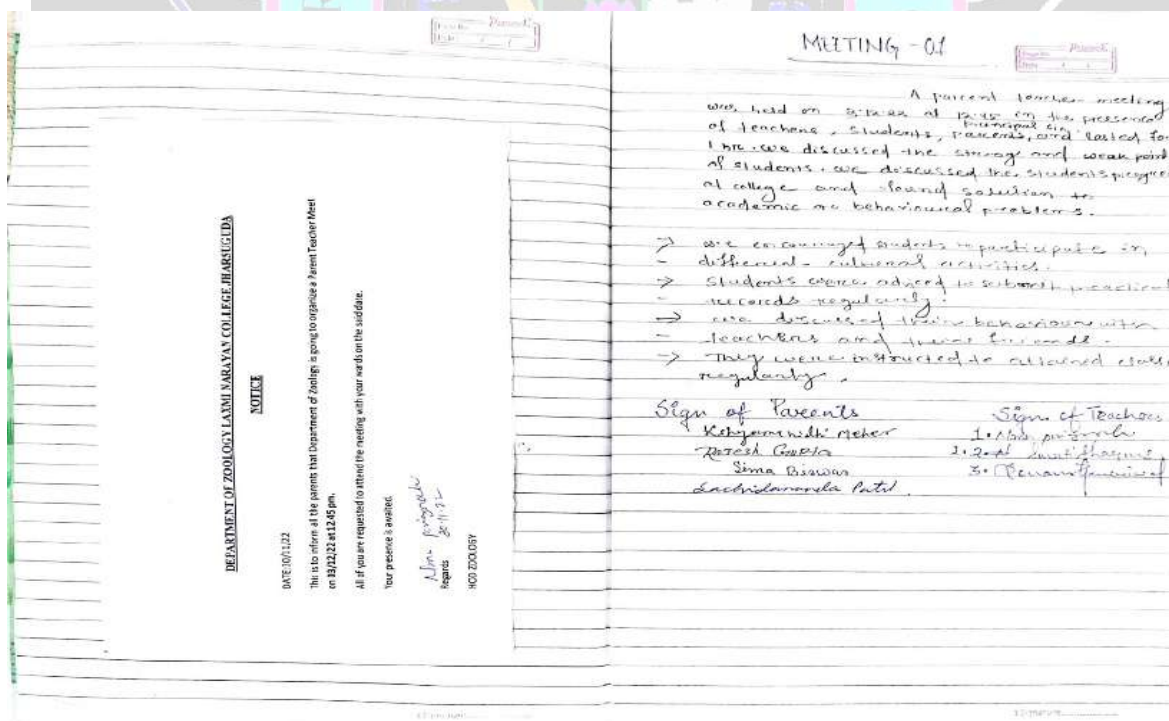 DEPARTMENT OF ZOOLOGY LAXMI NARAYAN COLLEGE JHARSUGUDA
NOTICE
DATE:30/11/22
This is to inform all the parents that Department of Zoology is going to organize a Parent Teacher Meet
on 13/12/22 at 12.45 pm.
All of you are requested to attend the meeting with your wards on the said date.
Your presence is awaited.
30-11-22
Regards
HOD ZOOLOGY
MEETING - 01
A parent teacher meeting
was held on at 12:45 in the presence
Principal sir
of teachers, students, parents, and lasted for
1 hr. we discussed the strong and weak point
of students. we discussed the students
at college and found solution to
academic or behavioural problems.
→ we encouraged students to participate in
different cultural activities.
→ Students were adviced to submit practical
records regularly.
→ we discussed their behaviour with
teachers and their friends.
→ They were instructed to attened class
regularly.
Sign of Parents
Sign of Teachers
Meher
1.
Gupta
2.
Sima Biswas
3.
Sachidananda Patel